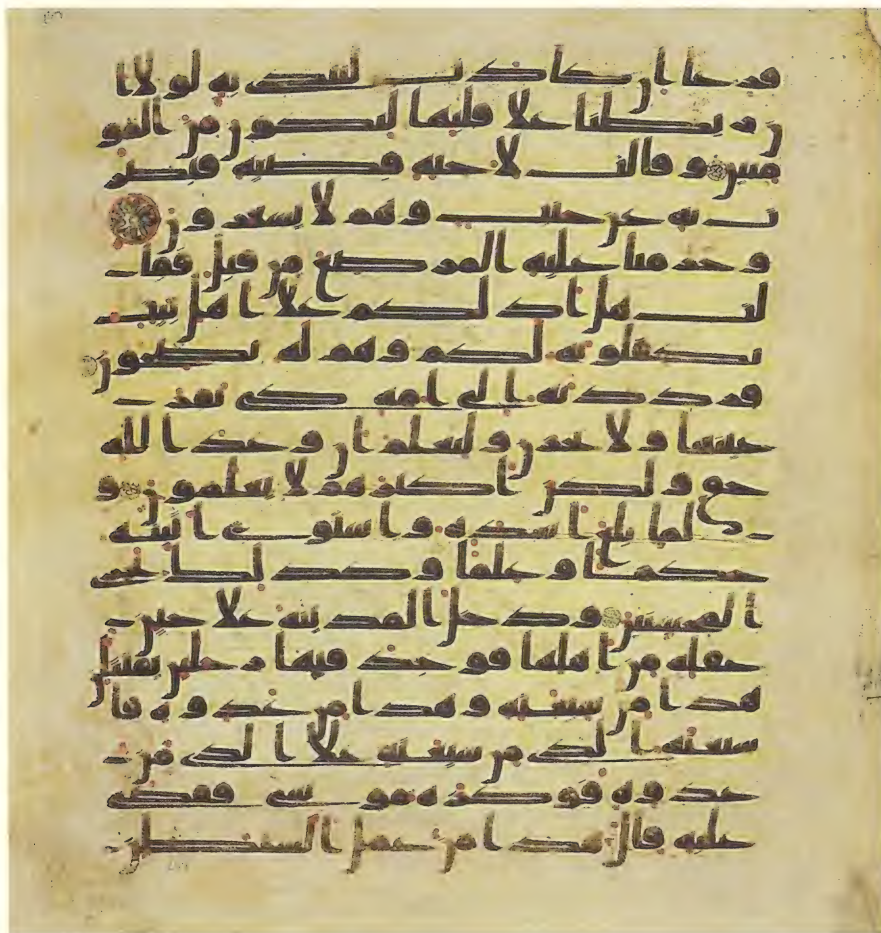 فرغا ان كادت لتبدي به لولا ا
ن ربطنا علا قلبها لتكون من المو
منين وقالت لاخته قصيه فبصر
ت به عن جنب وهم لا يشعرون
وحرمنا عليه المرضع من قبل فقا
لت هل ادلكم علا اهل بيت
يكفلونه لكم وهم له نصحون
فرددنه الى امه كي تقر
عينها ولا تحزن ولتعلم ان وعد الله
حق ولكن اكثرهم لا يعلمون و
لما بلغ اشده واستوى اتينه
حكما وعلما وكذلك نجزي
المحسنين ودخل المدينه علا حين
غفله من اهلها فوجد فيها رجلين يقتتلن
هذا من شيعته وهذا من عدوه فا
ستغثه الذي من شيعته علا الذي من
عدوه فوكزه موسى فقضى
عليه قال هذا من عمل الشيطن